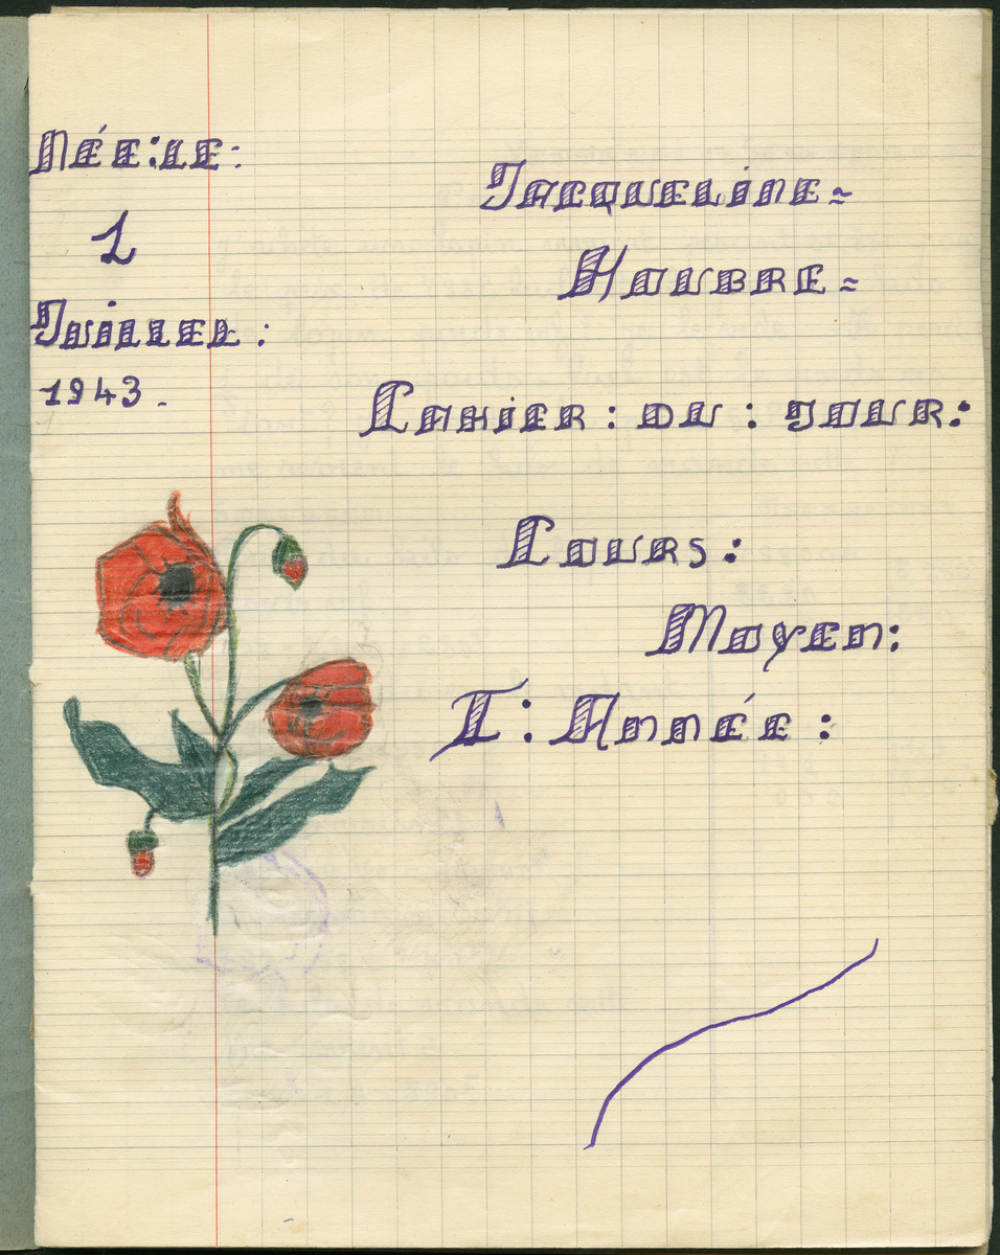 Née:le:
1
Juillet:
1943.
Jacqueline=
Houbre=
Cahier: du: jour:
Cours:
Moyen:
I: Année: